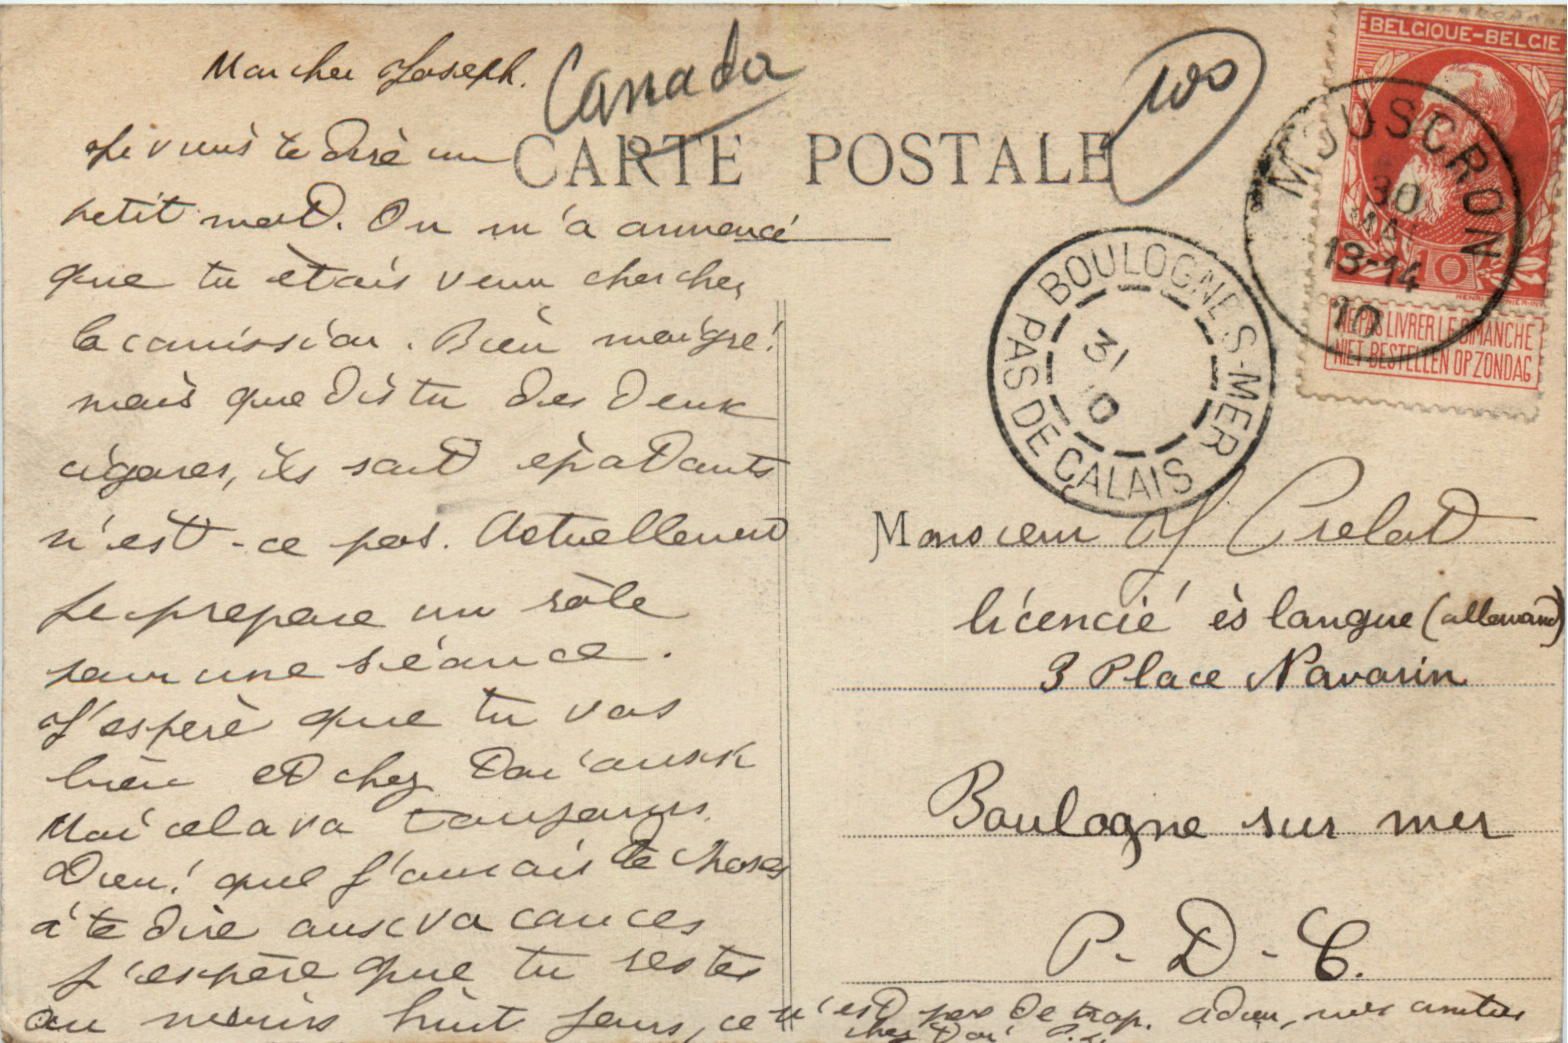 Mon cher Joseph.
Canada
100
CARTE POSTALE
Je viens te dire un
petit mot. On m'a annoncé
que tu étais venu chercher
la comission. Bien maigre!
mais que dis tu des deux
cigares, ils sont épatants
n'est-ce pas. Actuellement
je prepare un rôle
pour une séance.
J'espère que tu vas
bien et chez toi aussi
Moi cela va toujours.
Dieu! que j'aurais de choses
à te dire aux vacances
J'espère que tu restes
au moins huit jours, ce n'est pas de trop. adieu, mes amitiés
chez toi P.L.
BELGIQUE-BELGIE
10
NE PAS LIVRER LE DIMANCHE
NIET BESTELLEN OP ZONDAG
MOUSCRON
30
MAI
13-14
10
BOULOGNE-S-MER
31
10
PAS DE CALAIS
Monsieur J Crelot
licencié ès langue (allemand)
3 Place Navarin
Boulogne sur mer
P-D-C.